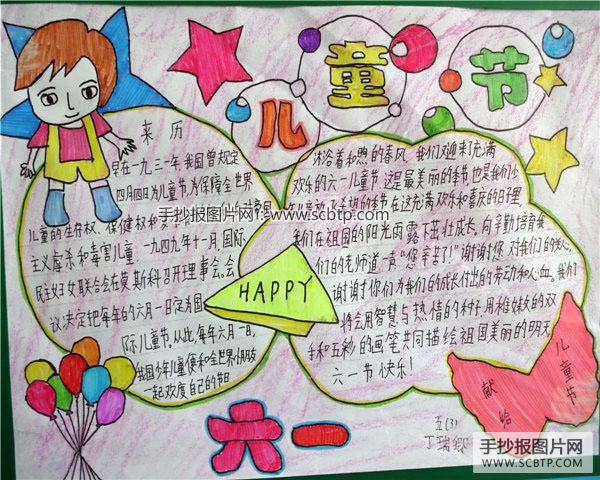 儿童节
来历
早在一九三一年,我国曾规定
四月四日为儿童节,为保障全世界
儿童的生存权、保健权和
手抄报图片网1:www.scbtp.com
主义虐杀和毒害儿童一九四九年十一月,国际
民主妇女联合会在莫斯科召开理事会。会
议决定把每年的六月一日定为国
际儿童节。从此,每年六月一日,
我国少年儿童便和全世界小朋友
一起欢度自己的节日
沐浴着和煦的春风,我们又迎来了充满
欢乐的六一儿童节这是最美丽的季节也是我们少
希望的季节在这充满欢乐和喜庆的日子里
我们在祖国的阳光雨露下茁壮成长,向辛勤培育我
们的老师道一声“您辛苦了!”谢谢您对我们的关心,
谢谢你们为我们的成长付出的劳动和心血。我们
将会用智慧与热情的种子,用稚嫩的双
手和五彩的画笔共同描绘祖国美丽的明天
六一节快乐!
HAPPY
献给
儿童节
六一
五(3)
丁瑞
手抄报图片网
WWW.SCBTP.COM